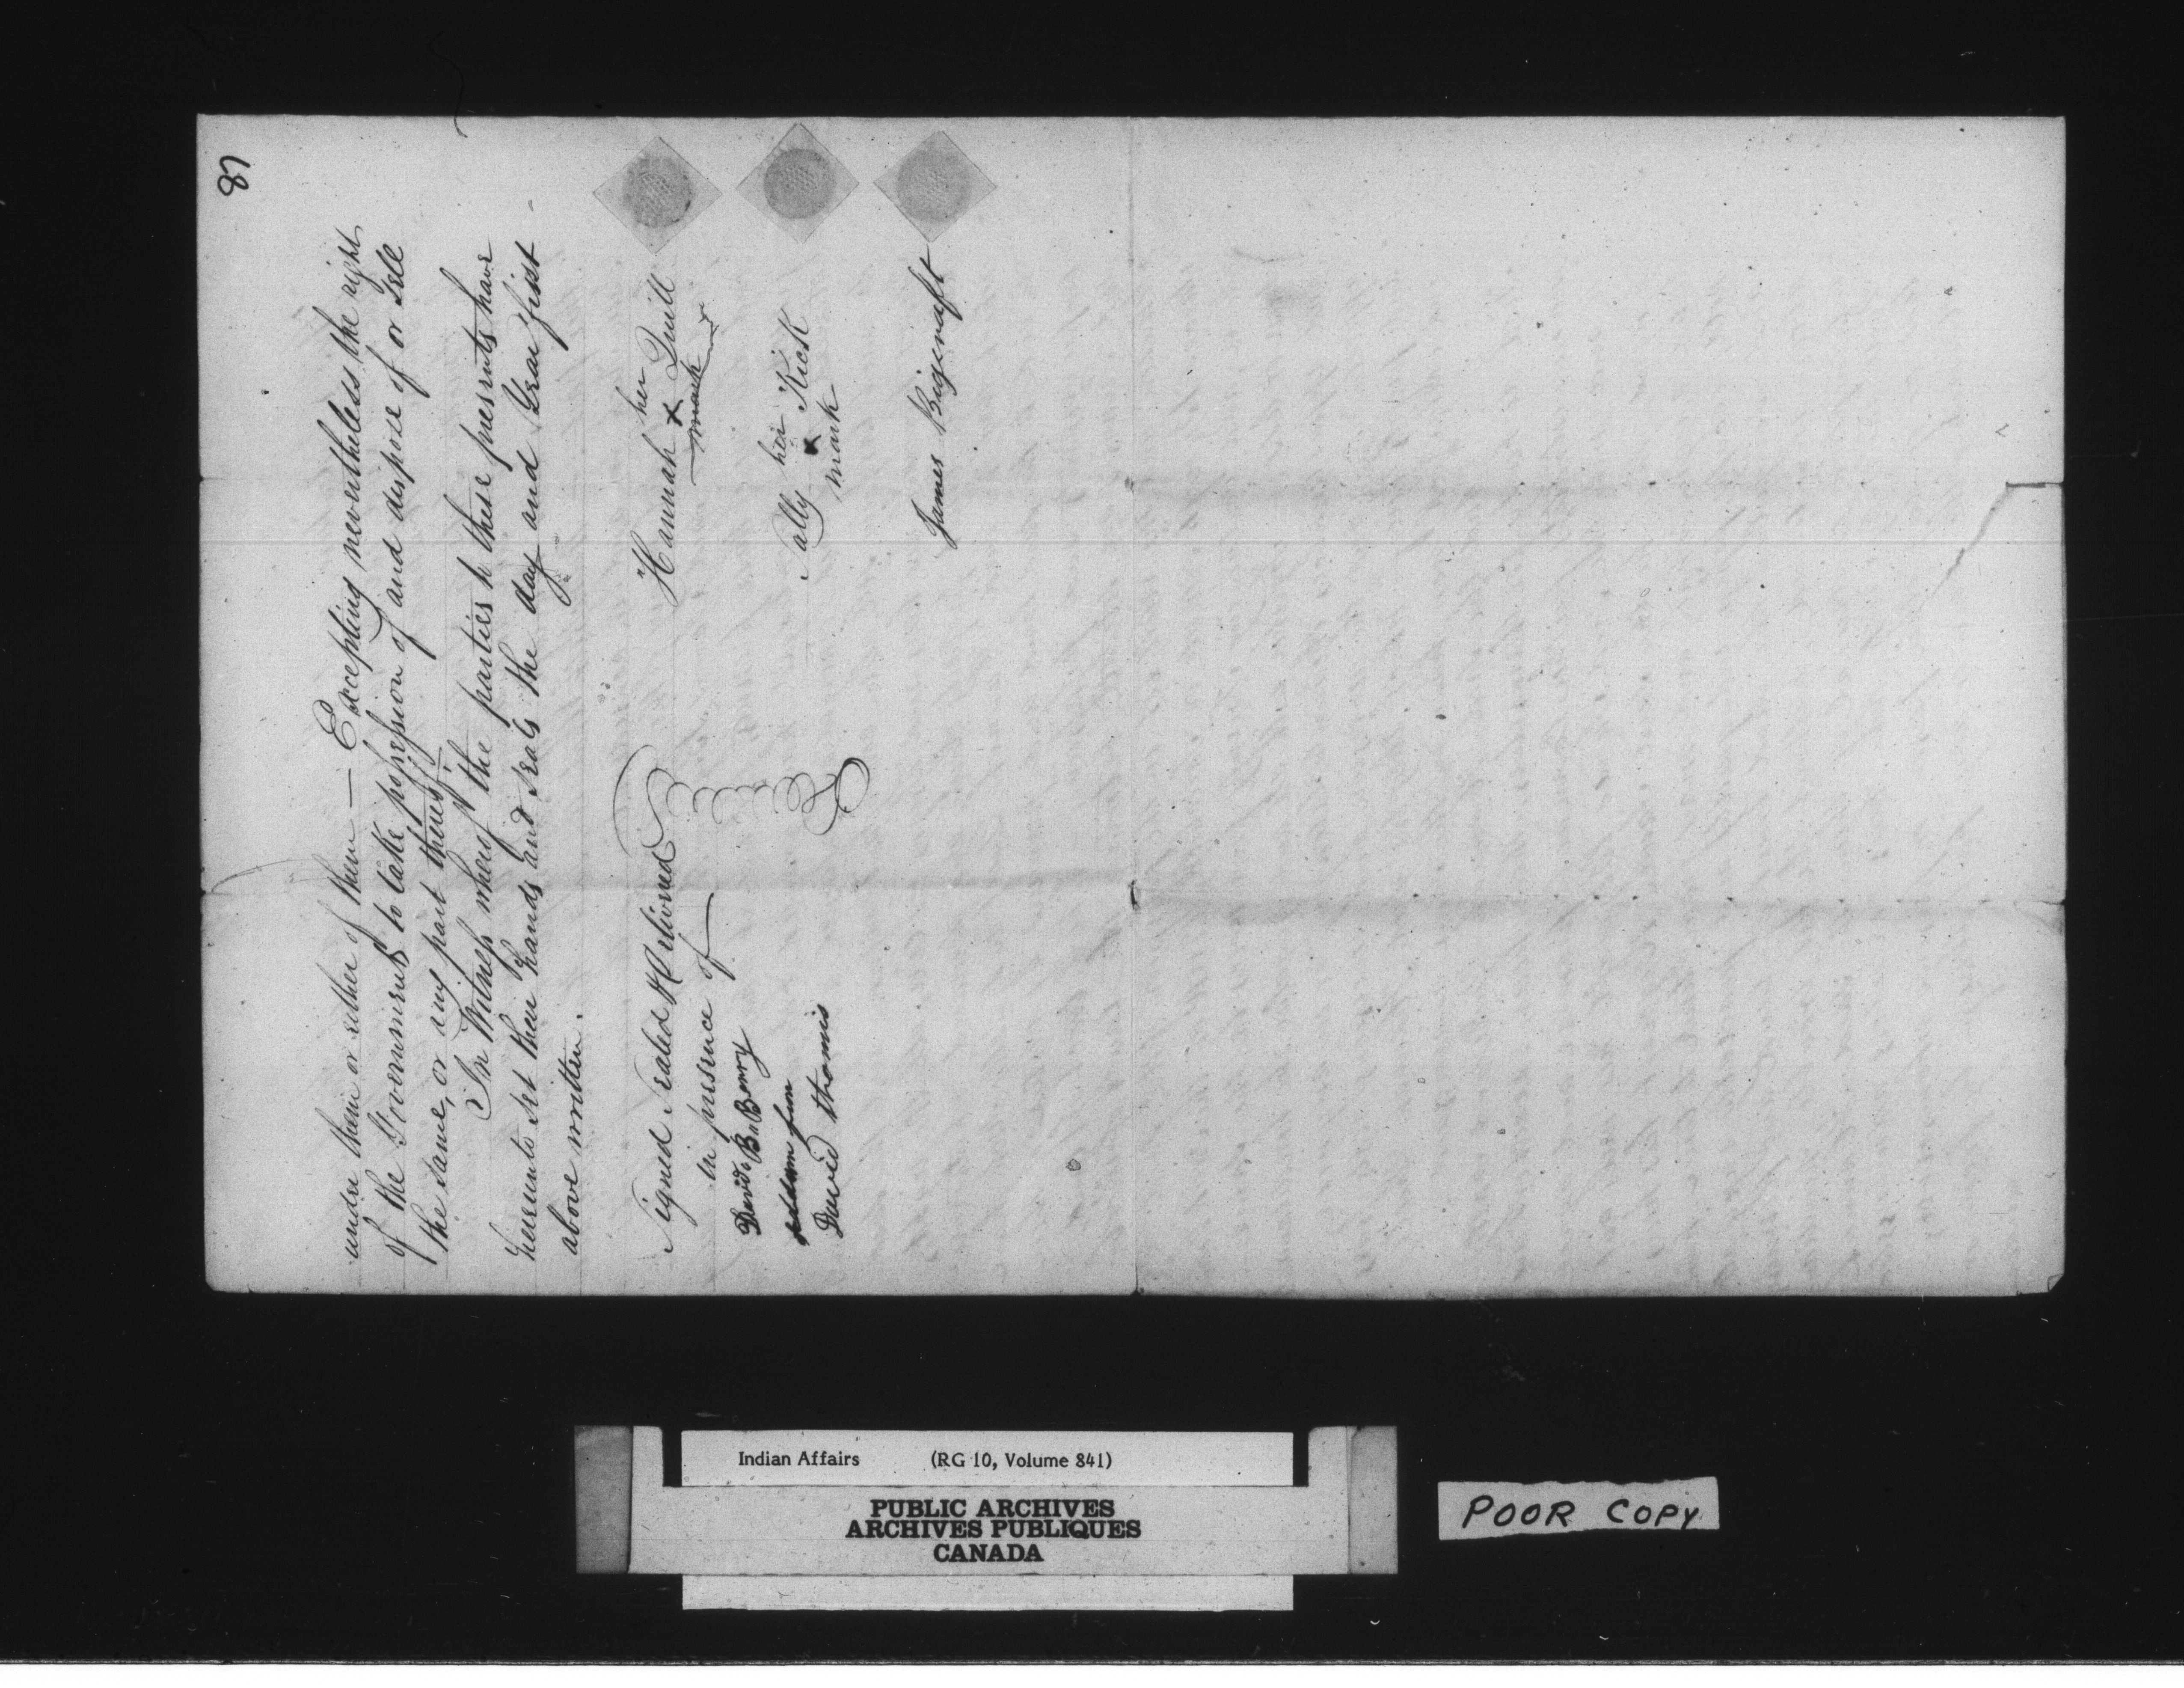 87
under them or either of them — Excepting nevertheless the right
of the Government to take possession of and dispose of or Sell
the same, or any part thereof.
In Witness whereof the parties to these presents have
hereunto set their hands and seals the day and Year first
above written.
Signed Sealed & Delivered
in presence of
David B. Berry
David thomis
her
Hannah x Quill
mark
her
Sally x Kick
mark
James Bigcraft
Indian Affairs (RG 10, Volume 841)
PUBLIC ARCHIVES
ARCHIVES PUBLIQUES
CANADA
POOR COPY